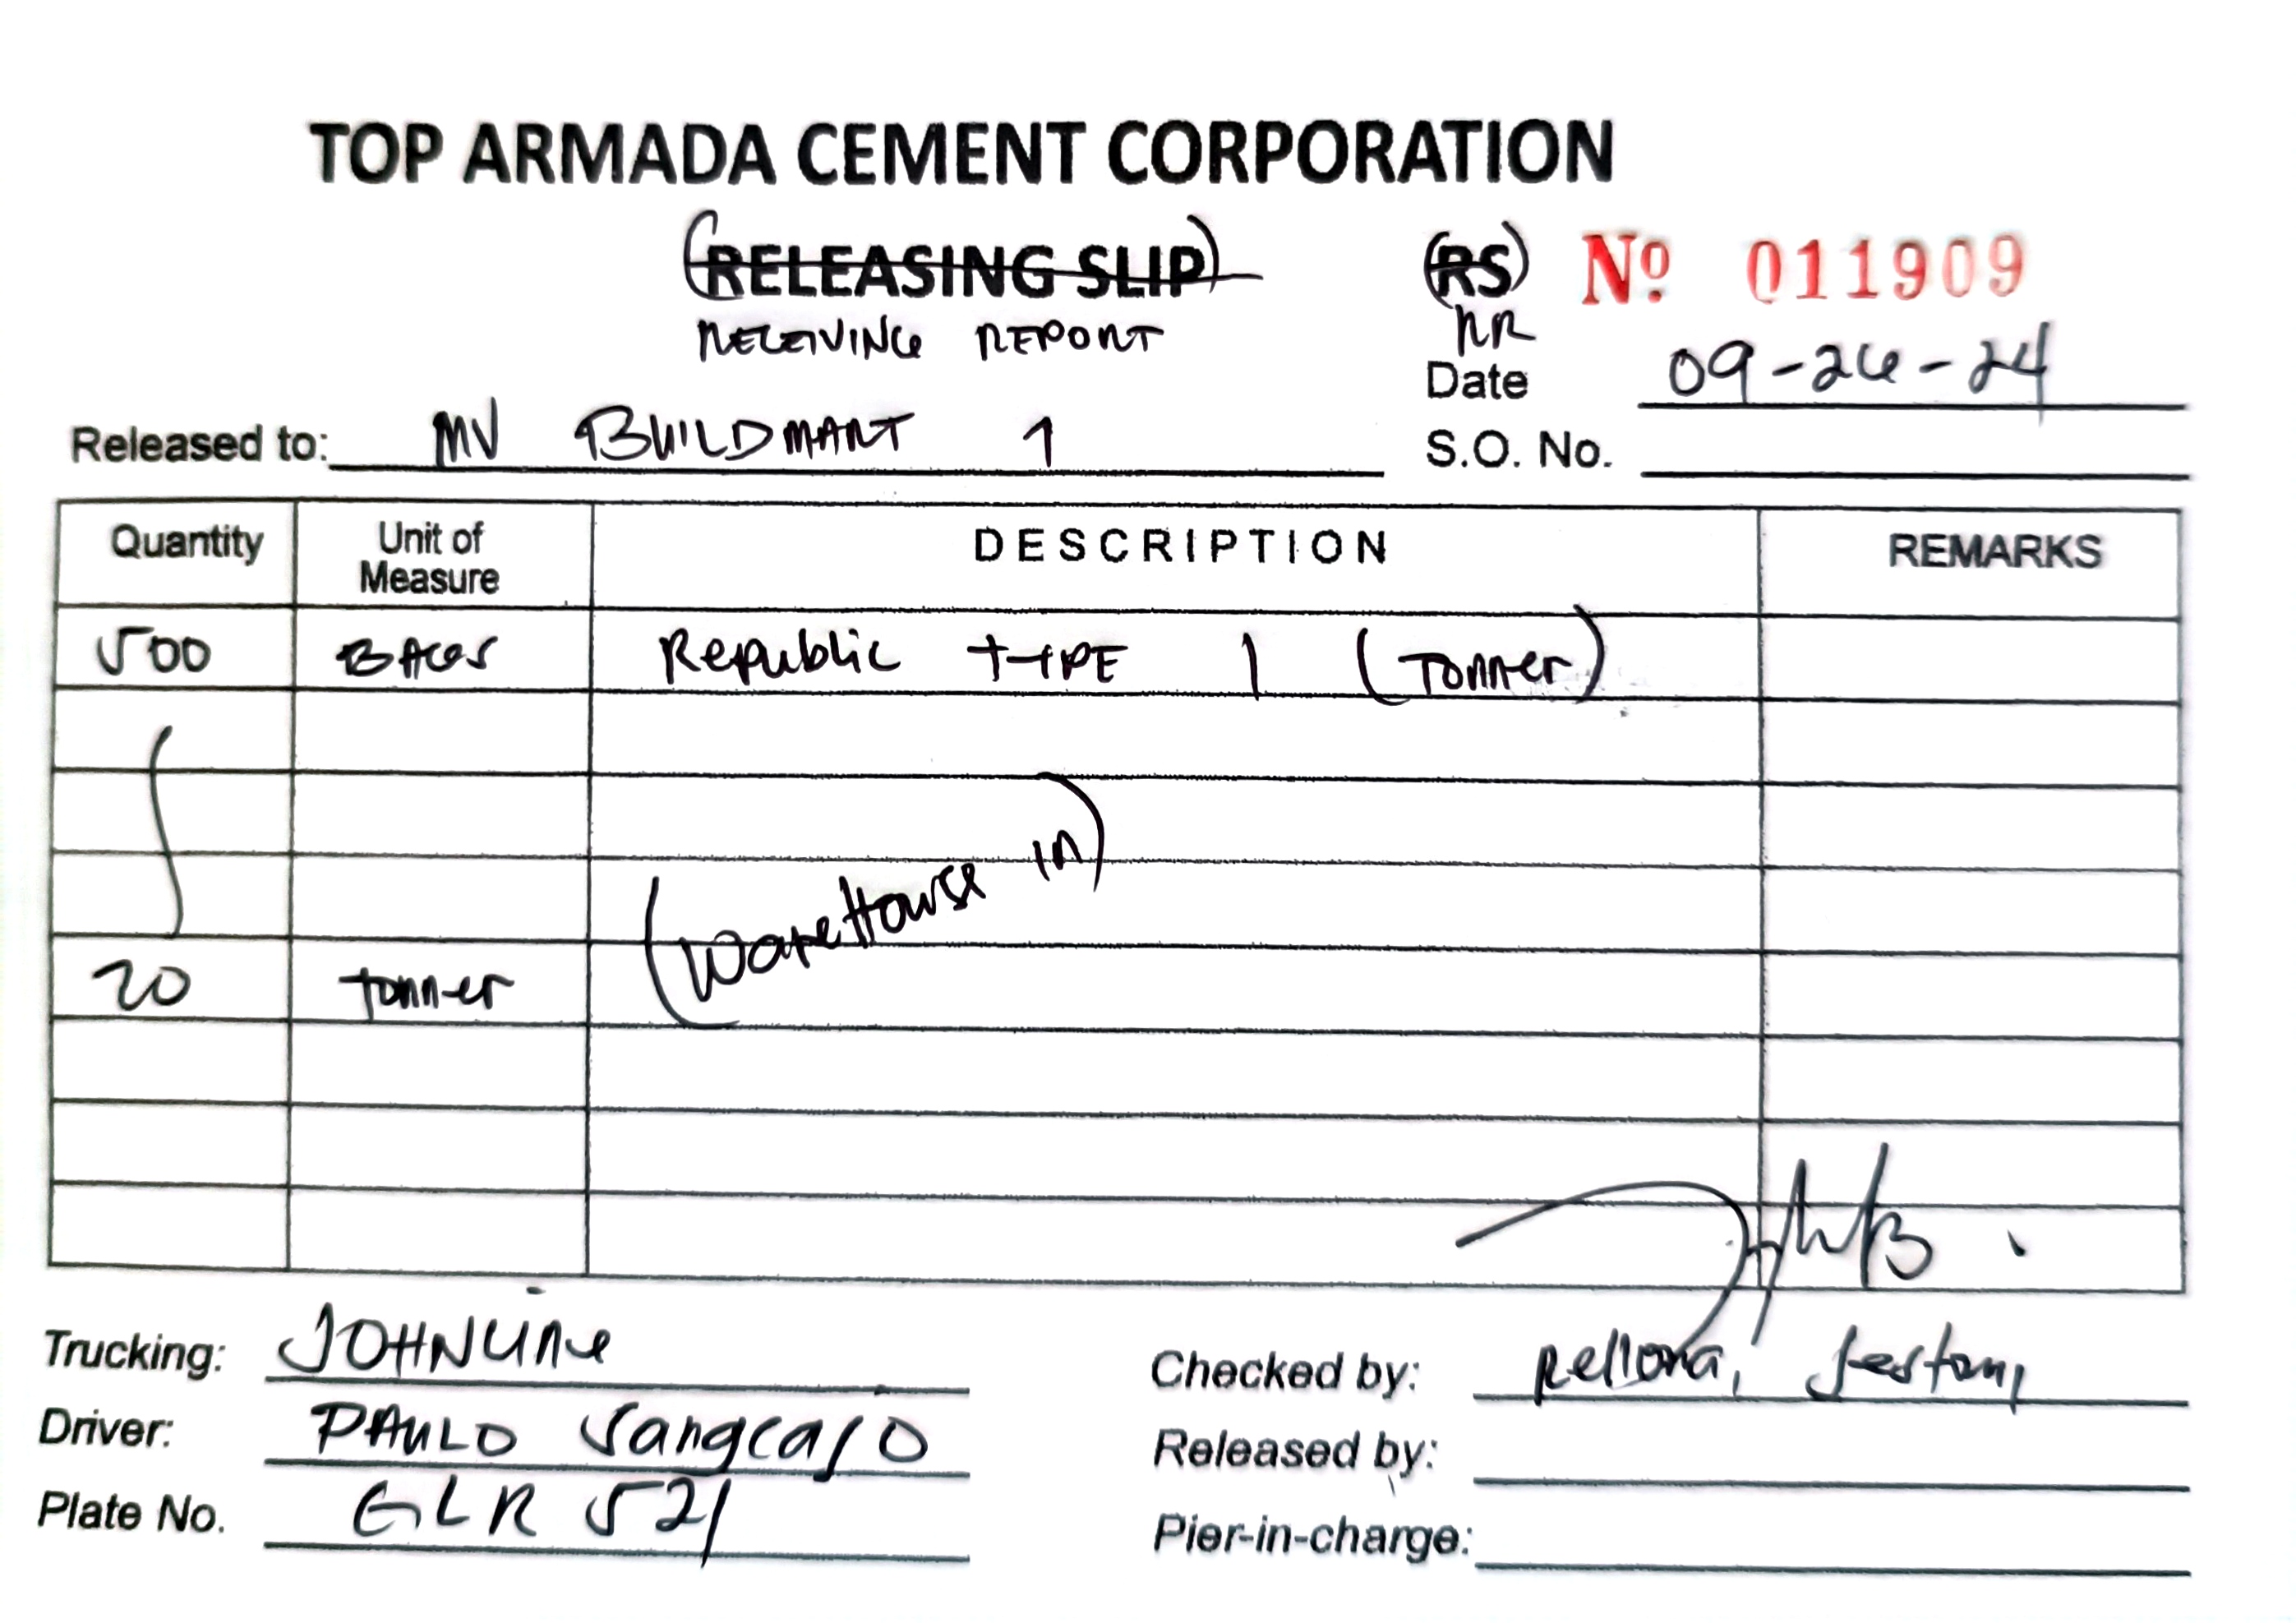 TOP ARMADA CEMENT CORPORATION
(RELEASING SLIP) (RS) Nº 011909
RECEIVING REPORT RR
Date 09-26-24
Released to: MV BUILDMART 1
S.O. No.
Quantity Unit of Measure DESCRIPTION REMARKS
500 BAGS Republic TYPE 1 (Tonner)
(WareHouse in)
20 tonner
Trucking: JOHNLINE
Checked by: Rellora,
Driver: PAULO Sangcajo
Released by:
Plate No. GLR 521
Pier-in-charge: